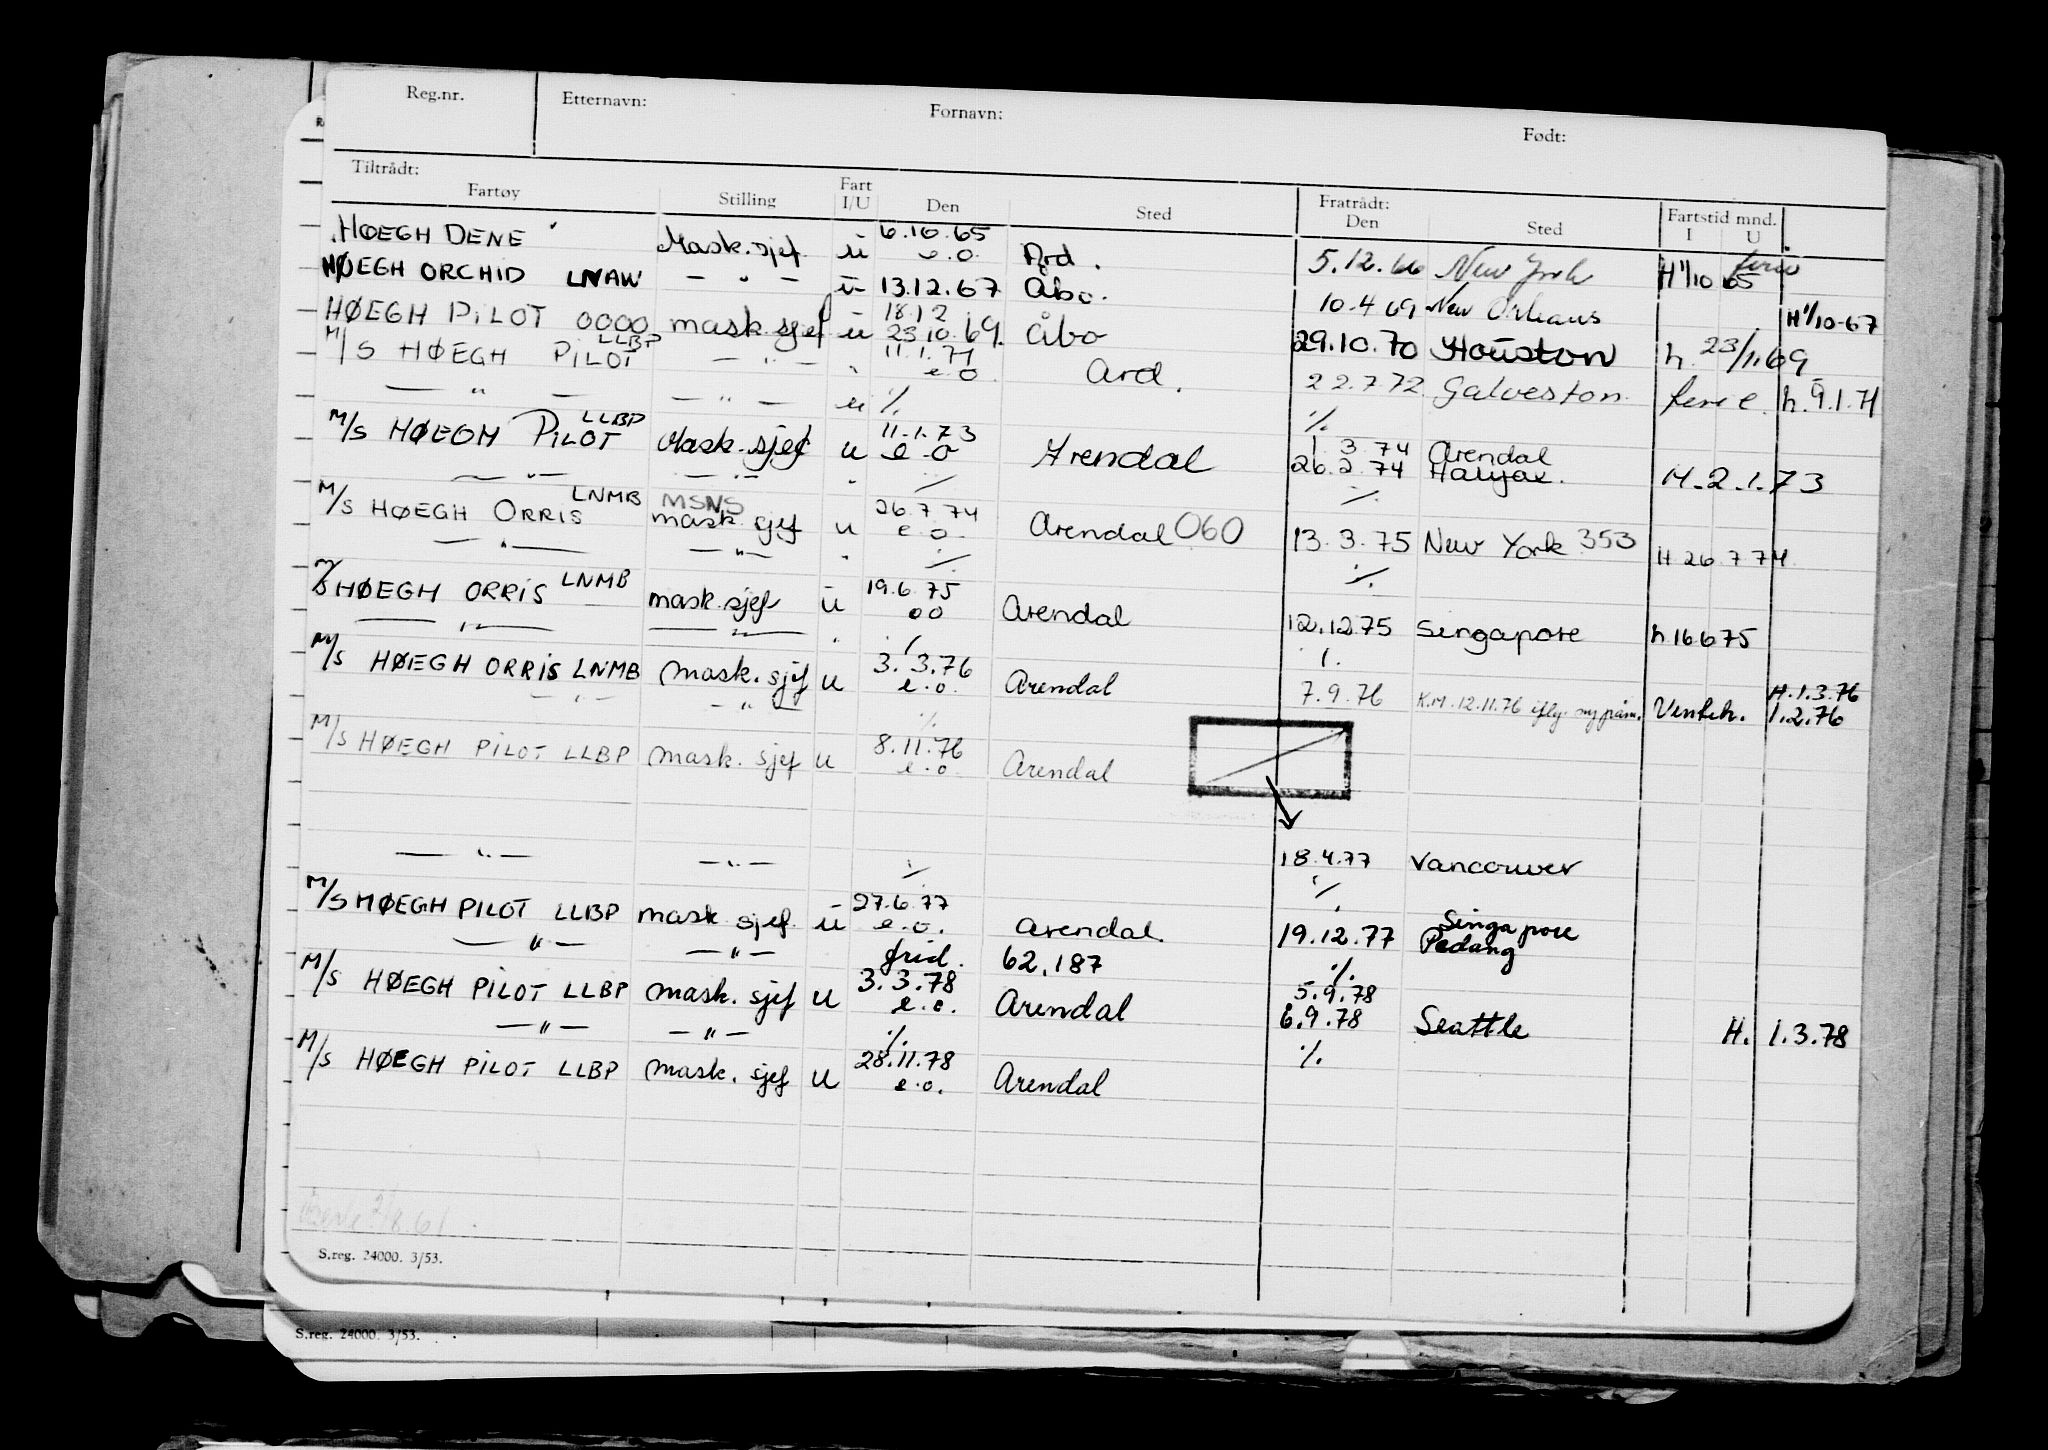 Reg.nr. Etternavn: Fornavn: Født:
Tiltrådt: Fratrådt:
Fartøy Stilling Fart I/U Den Sted Den Sted Fartstid mnd. I U
HØEGH DENE Mask.sjef u 6.10.65 e.o. Ard. 5.12.66 New York H 1/10 65 ferie
HØEGH ORCHID LNAW — " — u 13.12.67 Åbo. 10.4 69 New Orleans H 1/10-67
HØEGH PILOT 0000 mask.sjef u 18.12 23.10.69. Åbo 29.10.70 Houston h. 23/1.69
M/S HØEGH PILOT LLBP — " — " 11.1.71 e.o. Ard. 22.7 72 Galveston. ferie. h. 9.1.71
— " — — " — u ./. ./.
M/S HØEGH PILOT LLBP Mask.sjef u 11.1.73 e.o Arendal 1 3 74 Arendal
26.2.74 Halifax. H. 2.1.73
— " — — " — " ./. ./.
M/S HØEGH ORRIS LNMB MSNS mask. sjef u 26.7 74 e.o. Arendal 060 13.3.75 New York 353 H 26 7 74.
— " — — " — " ./. ./.
M/S HØEGH ORRIS LNMB mask.sjef u 19.6.75 eo Arendal 12.12.75 Singapore h 16 6 75
— " — — " — " ./. ./.
M/S HØEGH ORRIS LNMB mask. sjef u 3.3.76 e.o. Arendal 7.9.76 K.M. 12.11.76 Ventet. H.1.3.76 1.2.76
— " — — " — ./.
M/S HØEGH PILOT LLBP mask. sjef u 8.11.76 e.o. Arendal
— " — — " — ./. 18.4.77 Vancouver
M/S HØEGH PILOT LLBP mask. sjef. u 27.6.77 e.o. Arendal. ./.
— " — — " — 19.12.77 Singapore Pedang
frid. 62,187
M/S HØEGH PILOT LLBP mask. sjef u 3.3.78 e.o. Arendal ./. 5.9.78
6.9.78 Seattle H. 1.3.78
— " — — " — ./. ./.
M/S HØEGH PILOT LLBP mask. sjef u 28.11.78 e.o. Arendal
S.reg. 24000. 3/53.
S.reg. 24000. 3/53.